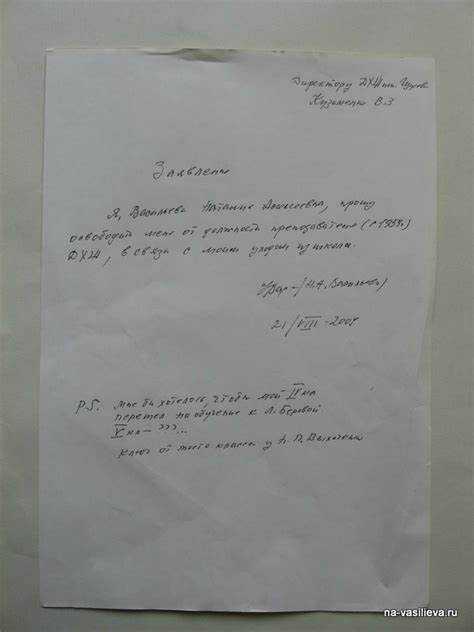 Директору ДХШ им.
В.З
Заявление
Я, Васильева Наталия Алексеевна, прошу
освободить меня от должности преподавателя (с 1989г.)
ДХШ, в связи с моим уходом из школы.
/Н.А. Васильева/
21/VIII-2009
P.S. Мне бы хотелось, чтобы мой IV кл
перешел на обучение к Л. Беровой
V кл – ???...
Ключ от моего класса у Л.П.
na-vasilieva.ru